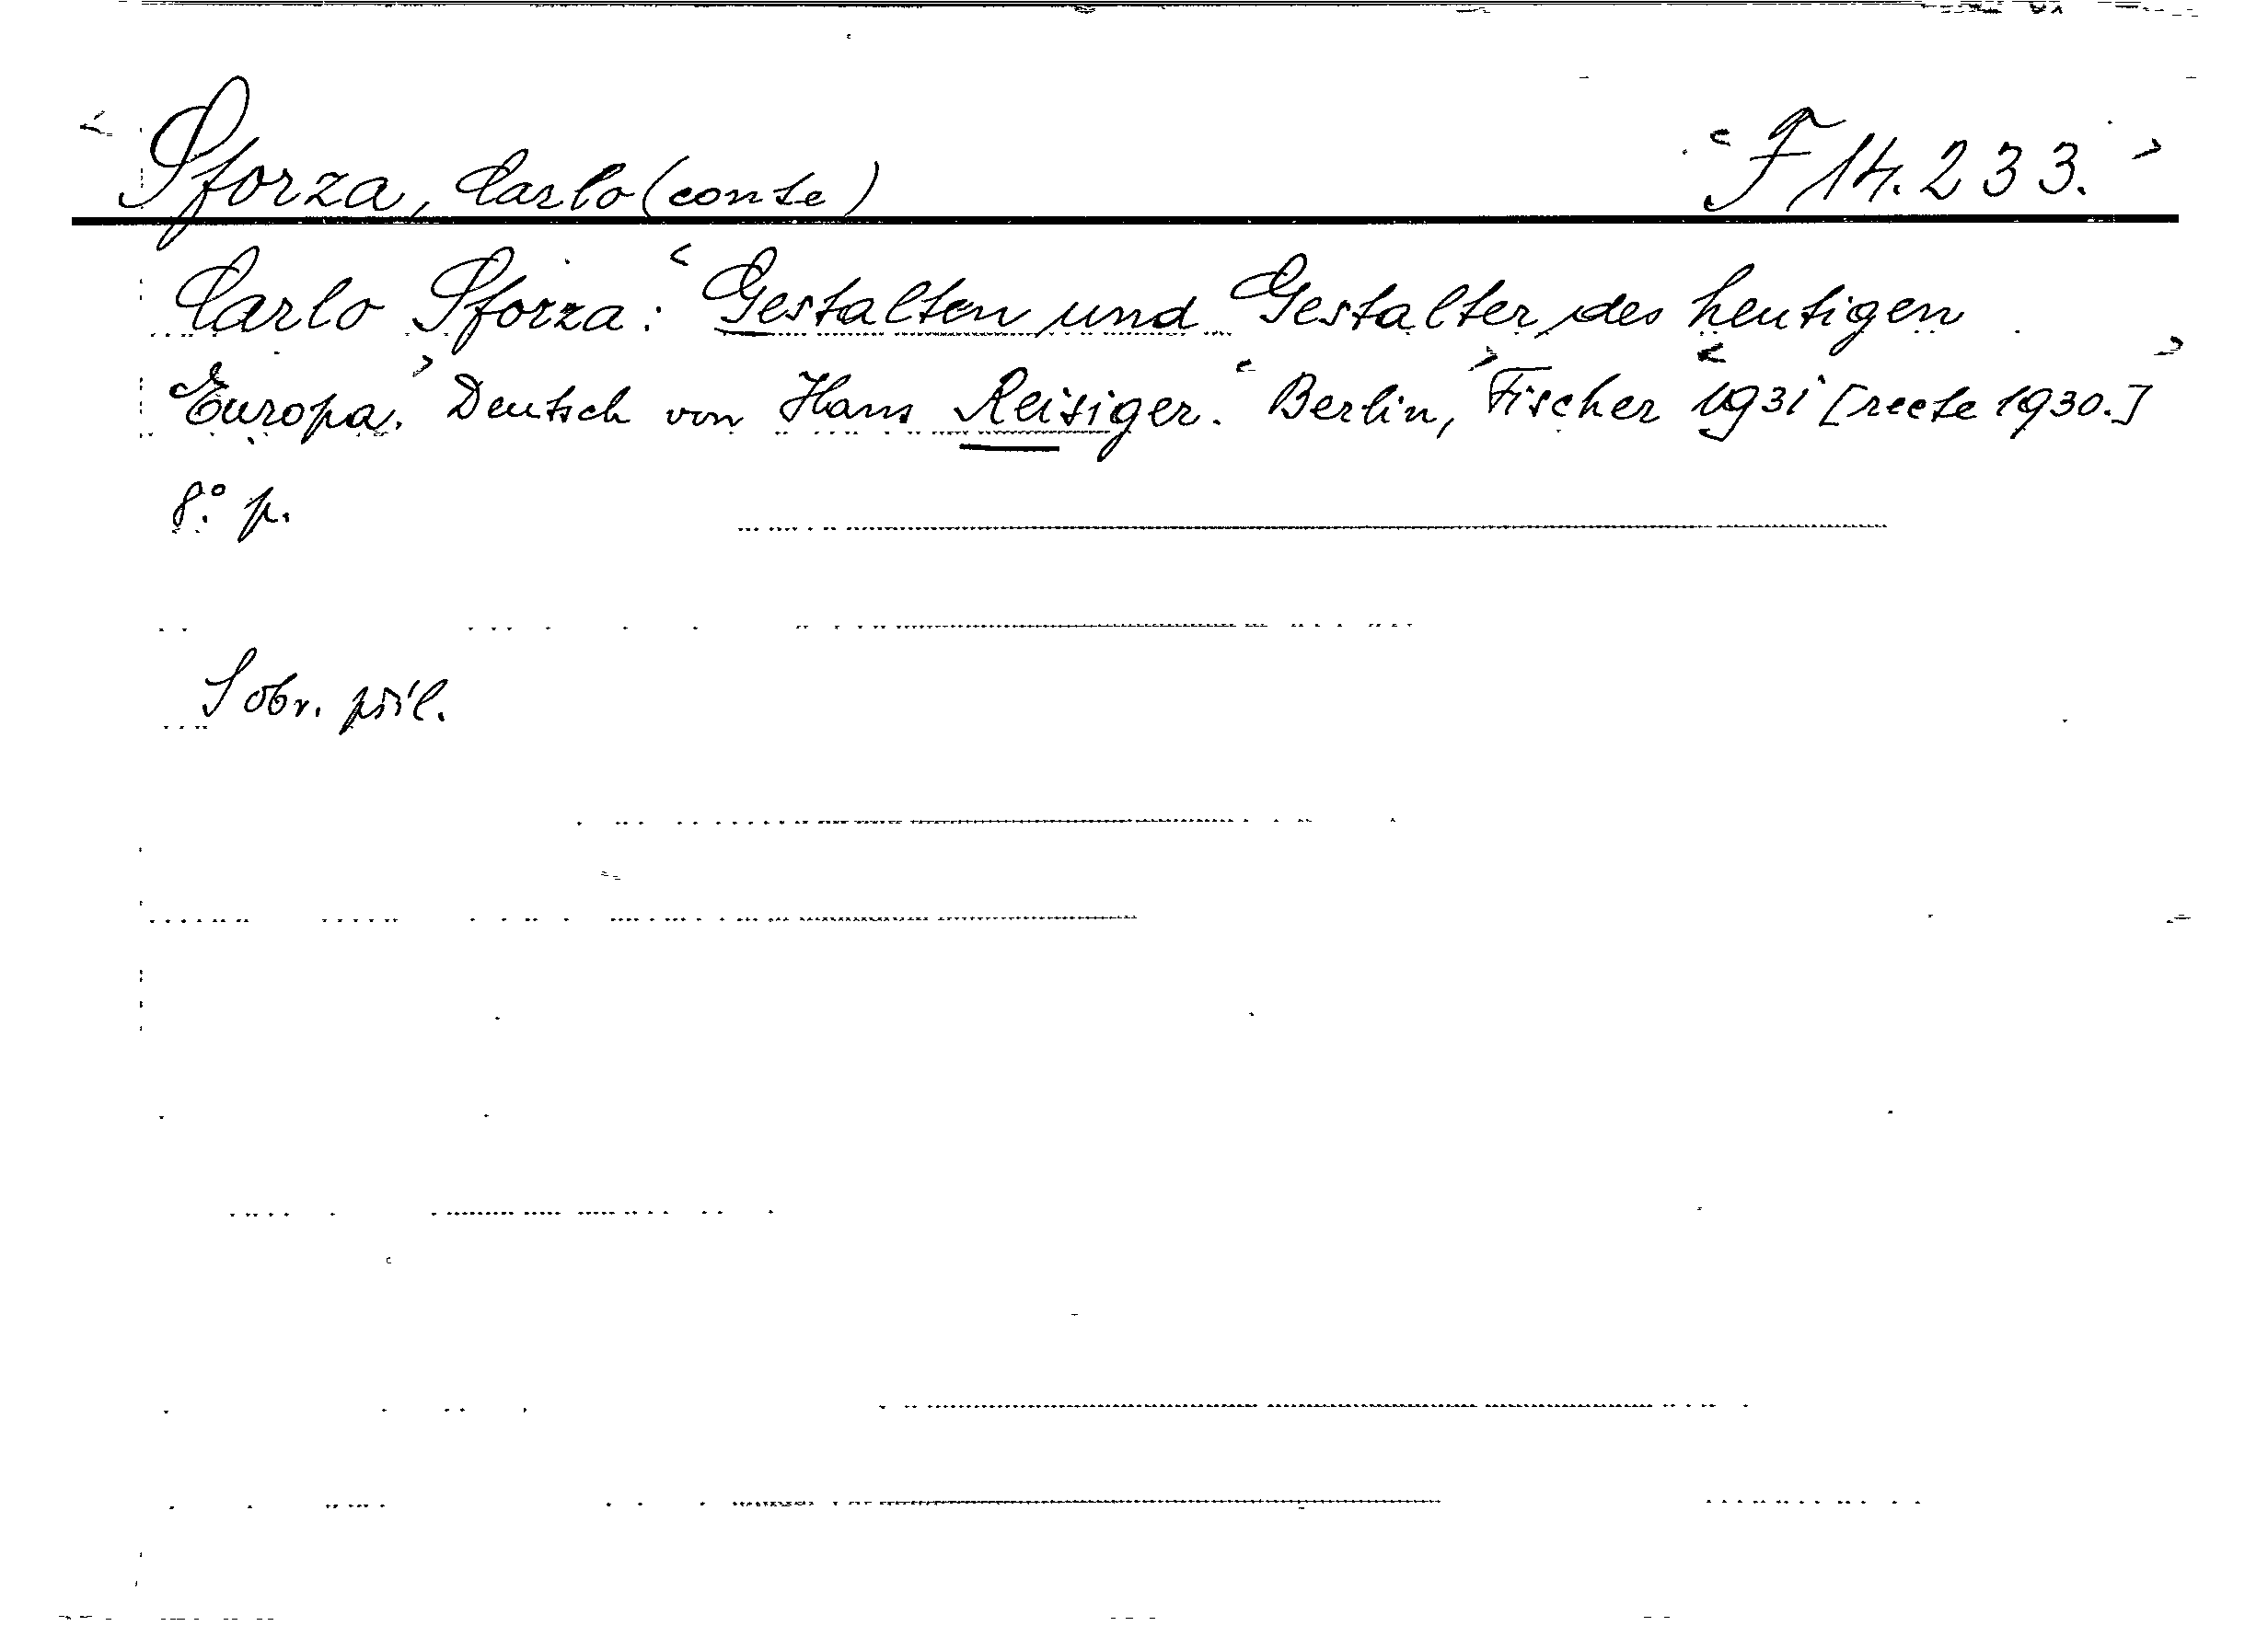 Sforza, Carlo (conte) F 14.233.
Carlo Sforza: Gestalten und Gestalter des heutigen
Europa. Deutsch von Hans Reisiger. Berlin, Fischer 1931 [recte 1930.]
8.° p.
S obr. příl.